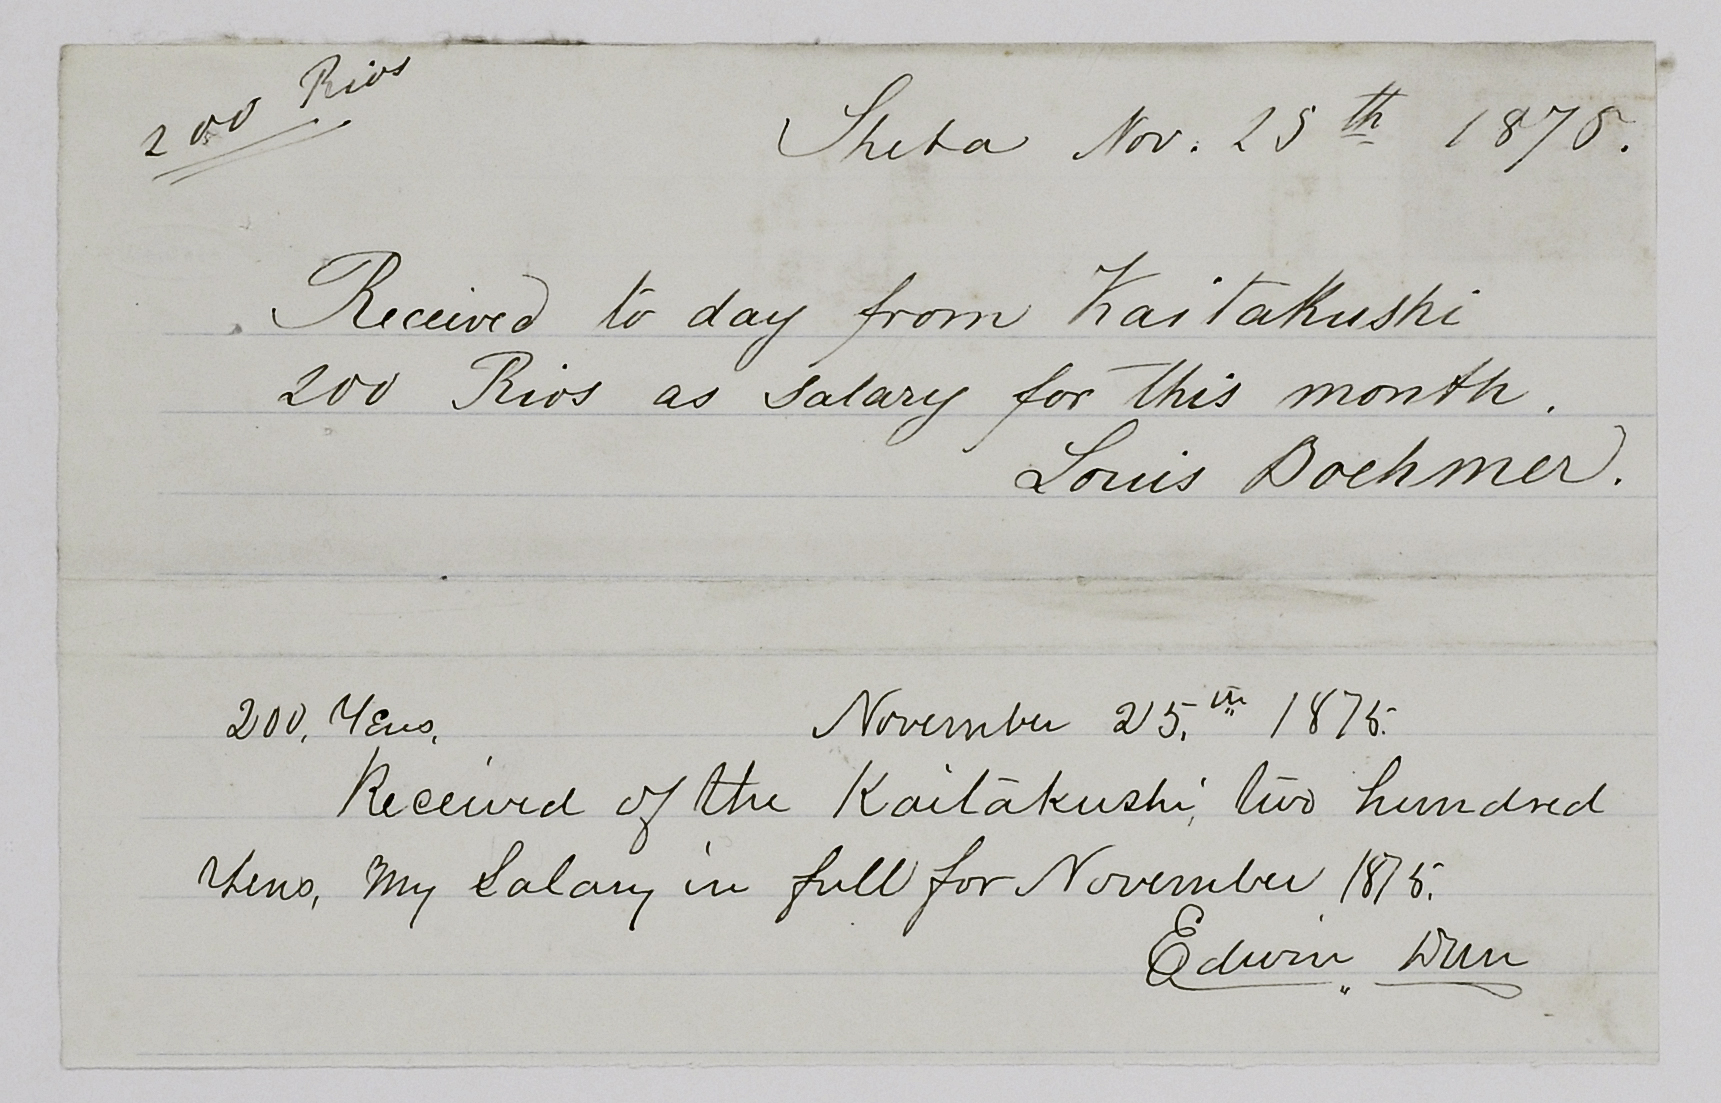 200 Rios
Sheba Nov. 25th 1875.
Received to day from Kaitakushi
200 Rios as salary for this month.
Louis Boehmer.
200, Yens, November 25,th 1875.
Received of the Kaitakushi, two hundred
Yens, My Salary in full for November 1875.
Edwin Dun